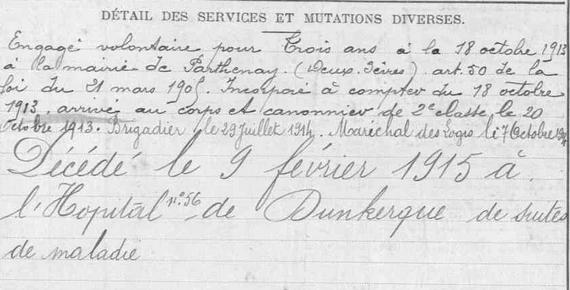 DÉTAIL DES SERVICES ET MUTATIONS DIVERSES.
Engagé volontaire pour Trois ans à la 18 octobre 1913
à la mairie de Parthenay. (Deux-Sèvres). art. 50 de la
loi du 21 mars 1905. Incorporé à compter du 18 octobre
1913, arrivé au corps et canonnier de 2e classe le 20
Octobre 1913. Brigadier le 29 Juillet 1914. Maréchal des logis le 7 Octobre
Décédé le 9 février 1915 à
l'Hopital n° 56 de Dunkerque de suites
de maladie